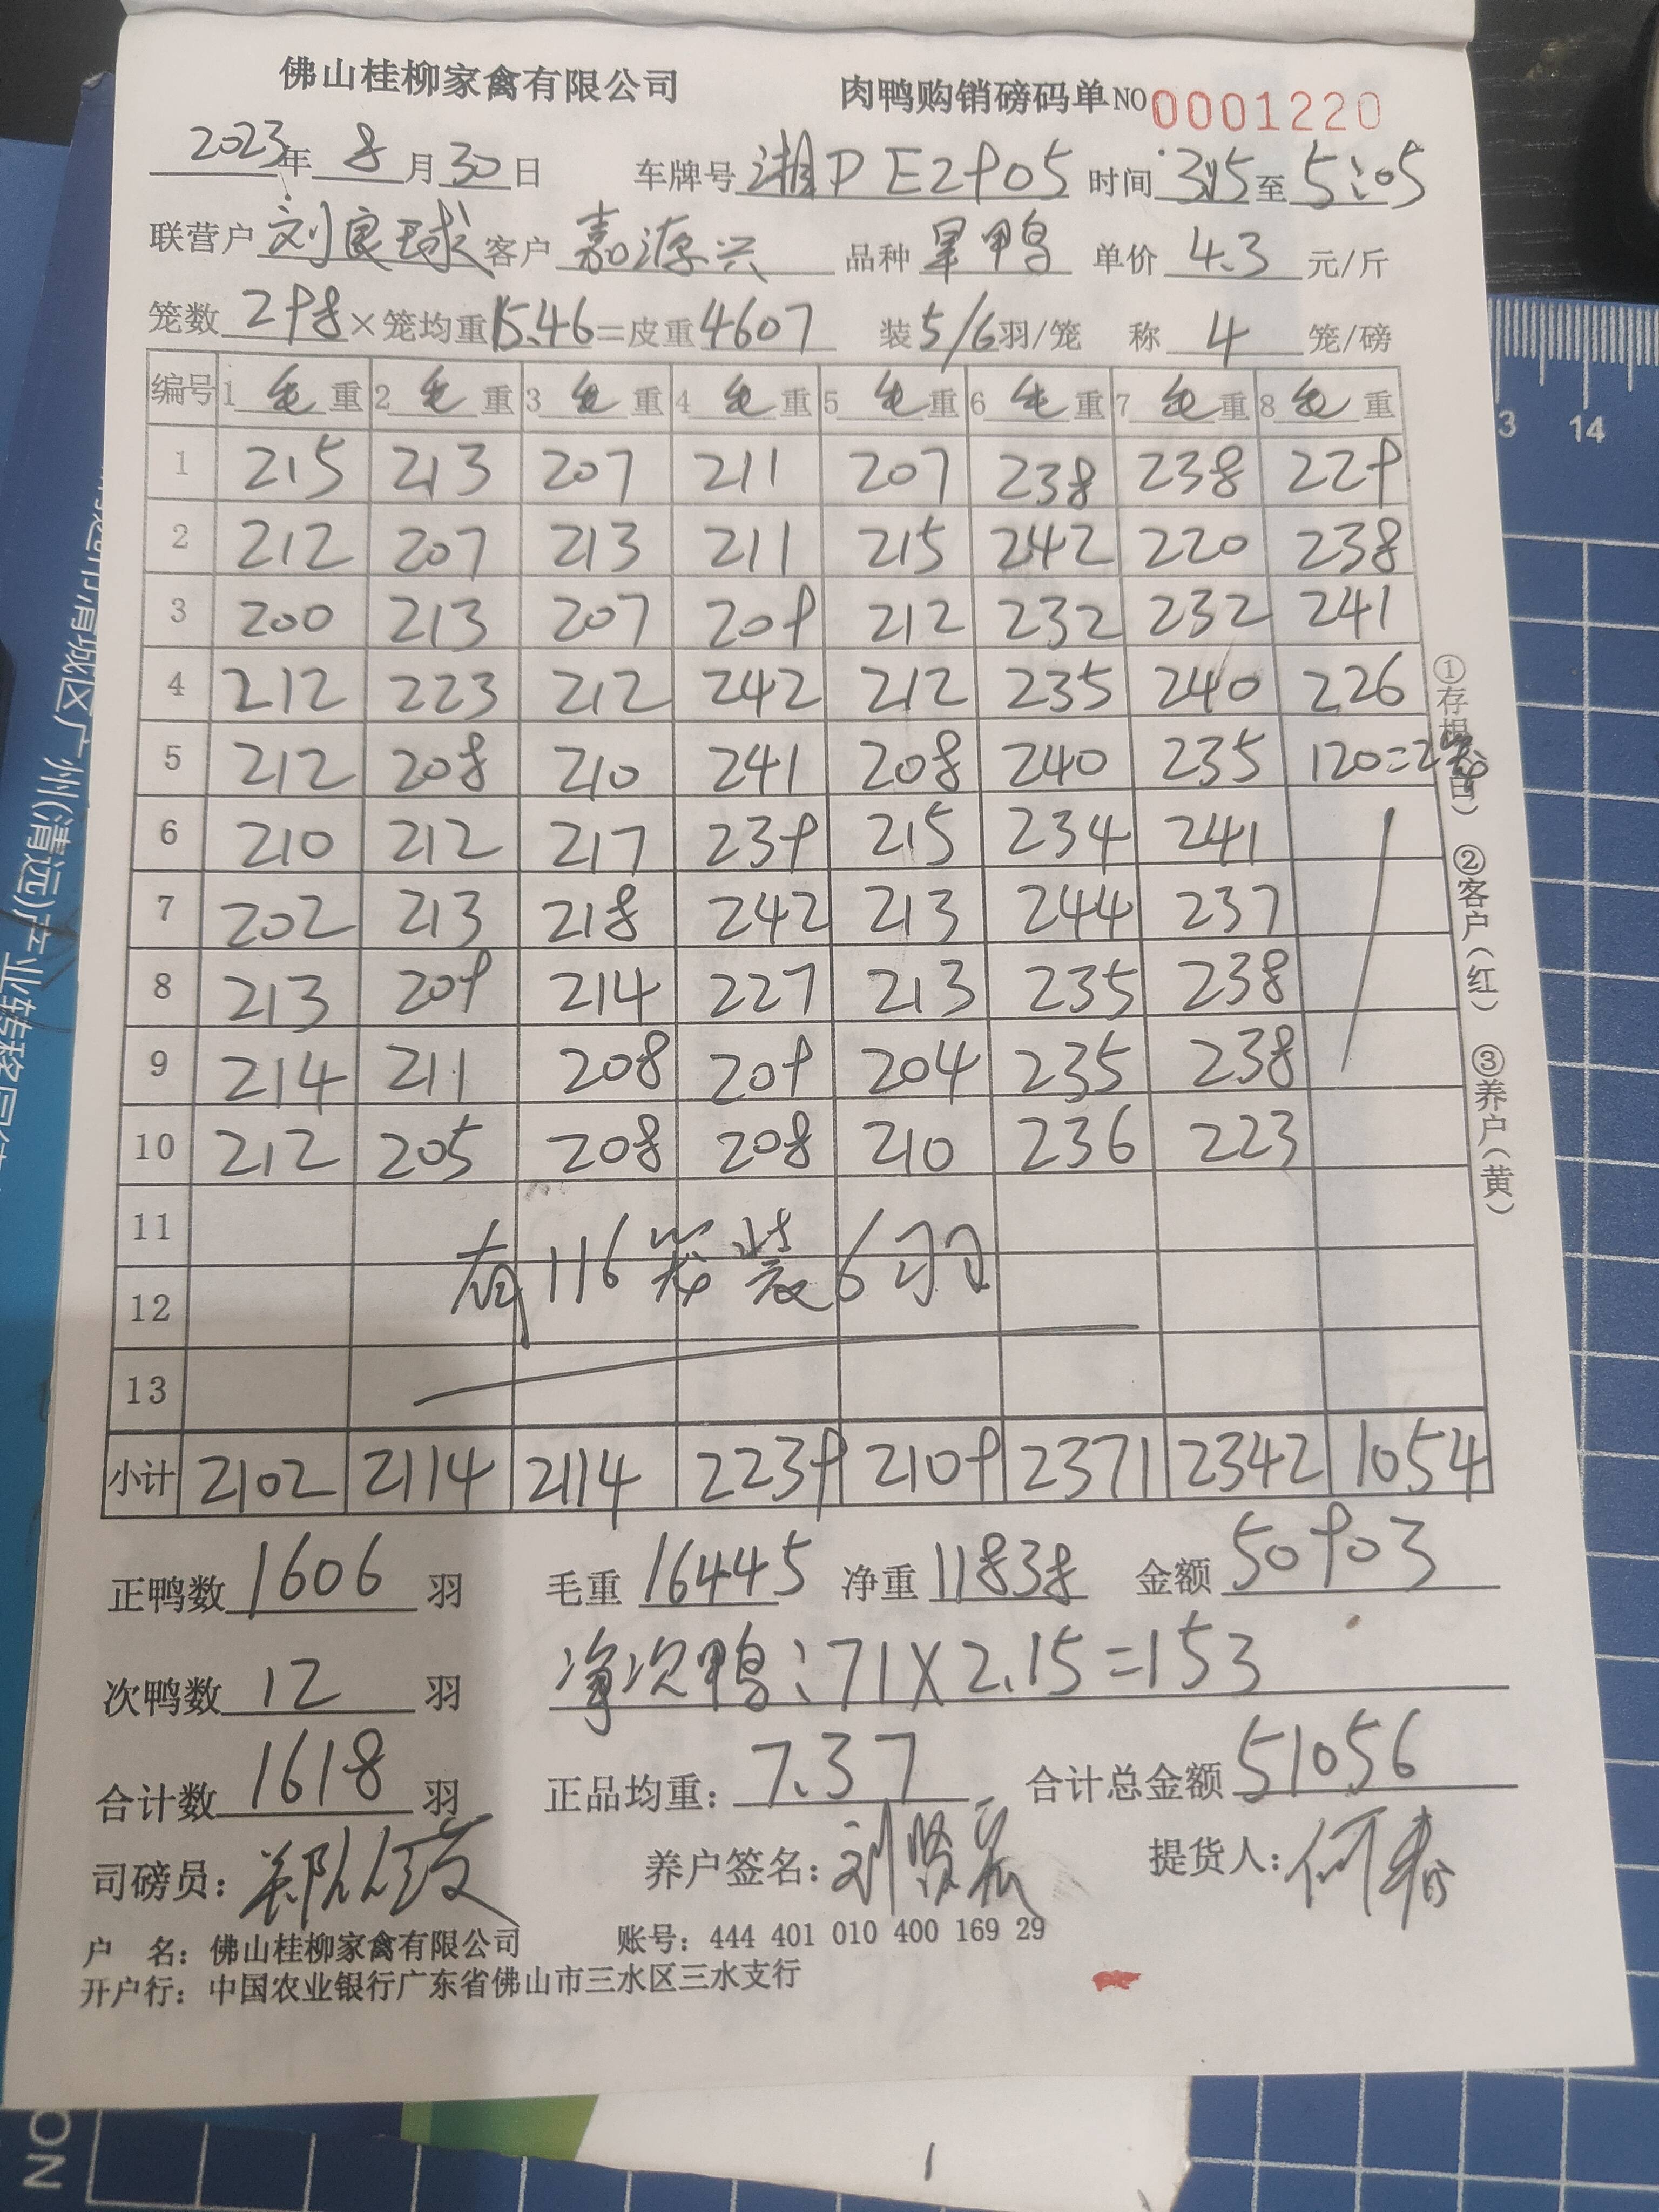 佛山桂柳家禽有限公司 肉鸭购销磅码单NO 0001220
2023年 8 月 30 日 车牌号 湘D E2905 时间 3:15 至 5:05
联营户 刘良球 客户 嘉源兴 品种 旱鸭 单价 4.3 元/斤
笼数 298 ×笼均重 15.46 =皮重 4607 装 5/6 羽/笼 称 4 笼/磅
编号 1 毛 重 2 毛 重 3 毛 重 4 毛 重 5 毛 重 6 毛 重 7 毛 重 8 毛 重
1 215 213 207 211 207 238 238 229
2 212 207 213 211 215 242 220 238
3 200 213 207 209 212 232 232 241
4 212 223 212 242 212 235 240 226
5 212 208 210 241 208 240 235 120=2笼
6 210 212 217 239 215 234 241
7 202 213 218 242 213 244 237
8 213 209 214 227 213 235 238
9 214 211 208 209 204 235 238
10 212 205 208 208 210 236 223
11
有116笼装6羽
12
13
小计 2102 2114 2114 2239 2109 2371 2342 1054
正鸭数 1606 羽 毛重 16445 净重 11838 金额 50903
次鸭数 12 羽 净次鸭:71X2.15=153
合计数 1618 羽 正品均重: 7.37 合计总金额 51056
司磅员: 郑 养户签名: 刘 提货人: 何春
户 名: 佛山桂柳家禽有限公司 账号: 444 401 010 400 169 29
开户行: 中国农业银行广东省佛山市三水区三水支行
①存根(白) ②客户(红) ③养户(黄)
3 14
州(清远)产业转移
NO
1